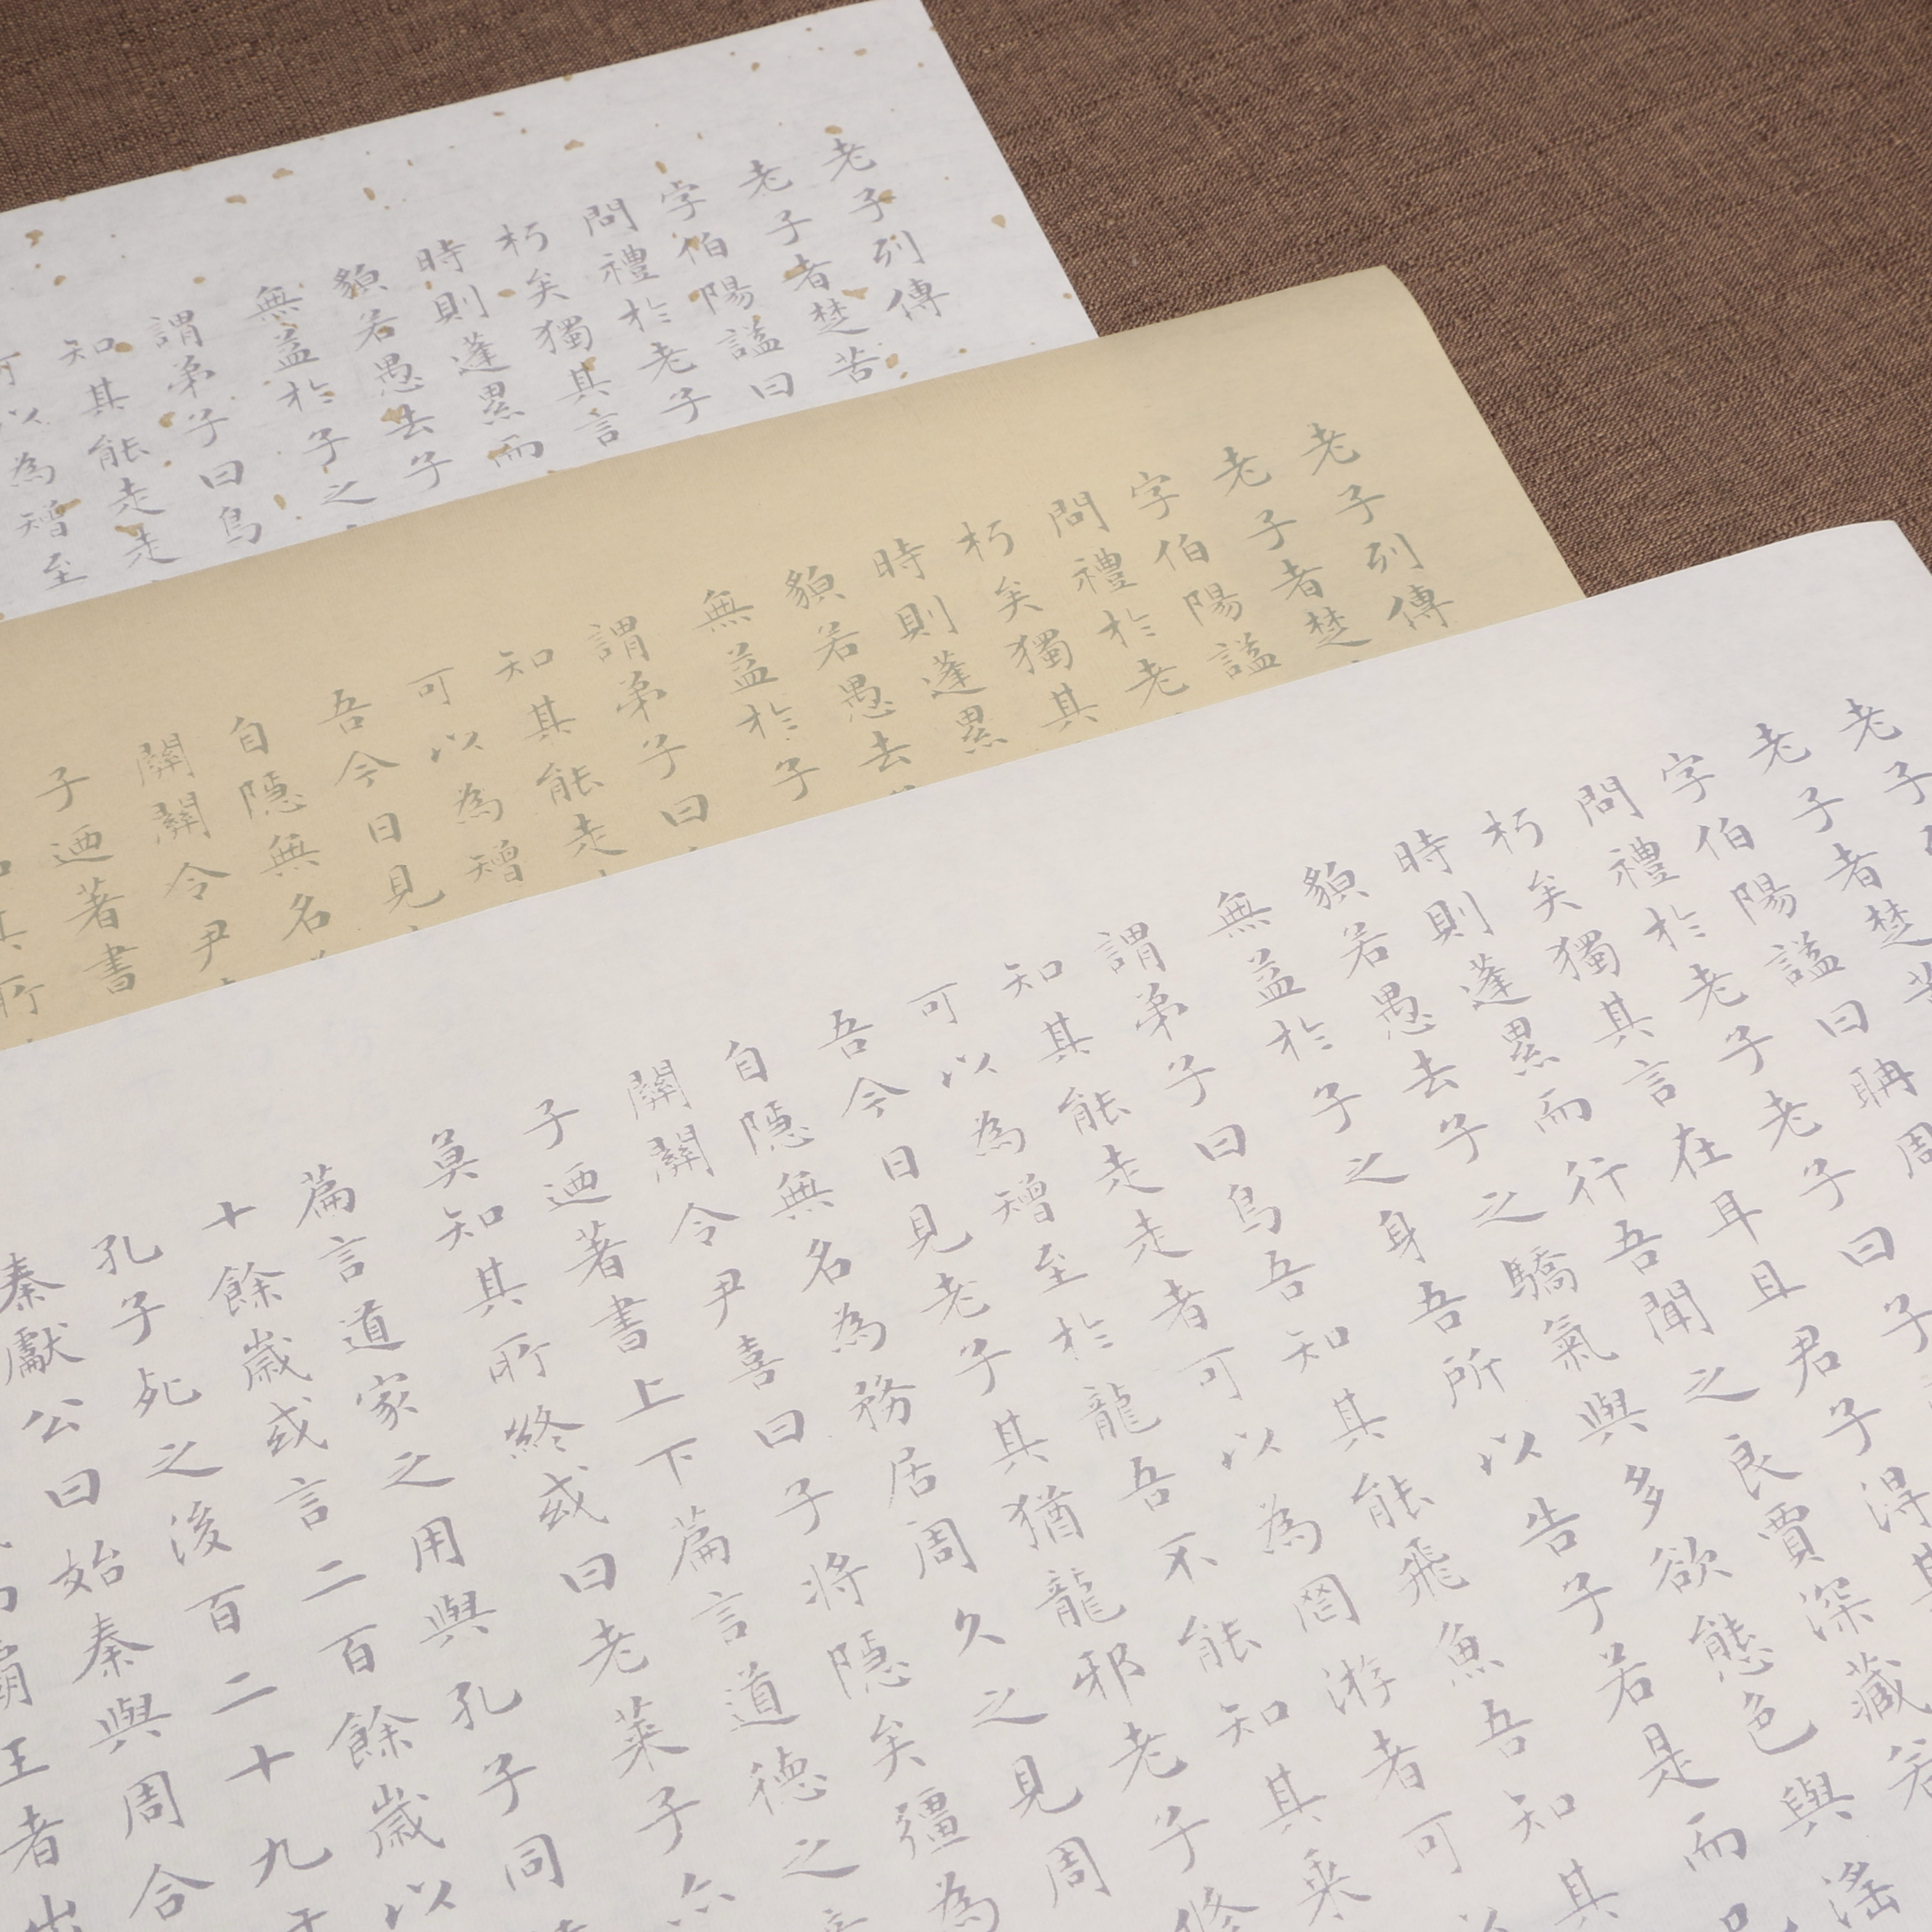 老子列傳
老子者楚苦
字伯陽謚曰
問禮於老子
朽矣獨其言
時則蓬累而
䫉若愚去子
無益於子之
謂弟子曰鳥
知其能走走
可以為矰至
老子列傳
老子者楚
字伯陽謚
問禮於老
朽矣獨其
時則蓬累
䫉若愚去
無益於子
謂弟子曰
知其能走
可以為矰
吾今日見
自隱無名
關關令尹
子迺著書
其所
老子
老子者楚苦
字伯陽謚曰聃周
問禮於老子老子曰子
朽矣獨其言在耳且君子得其
時則蓬累而行吾聞之良賈深藏若
䫉若愚去子之驕氣與多欲態色與淫
無益於子之身吾所以告子若是而已
謂弟子曰鳥吾知其能飛魚吾知其
知其能走走者可以為罔游者可以
可以為矰至於龍吾不能知其乘
吾今日見老子其猶龍邪老子修
自隱無名為務居周久之見周
關關令尹喜曰子將隱矣彊為
子迺著書上下篇言道德之意
莫知其所終或曰老萊子亦
篇言道家之用與孔子同時
十餘歲或言二百餘歲以
孔子死之後百二十九年
秦獻公曰始秦與周合
霸王者出